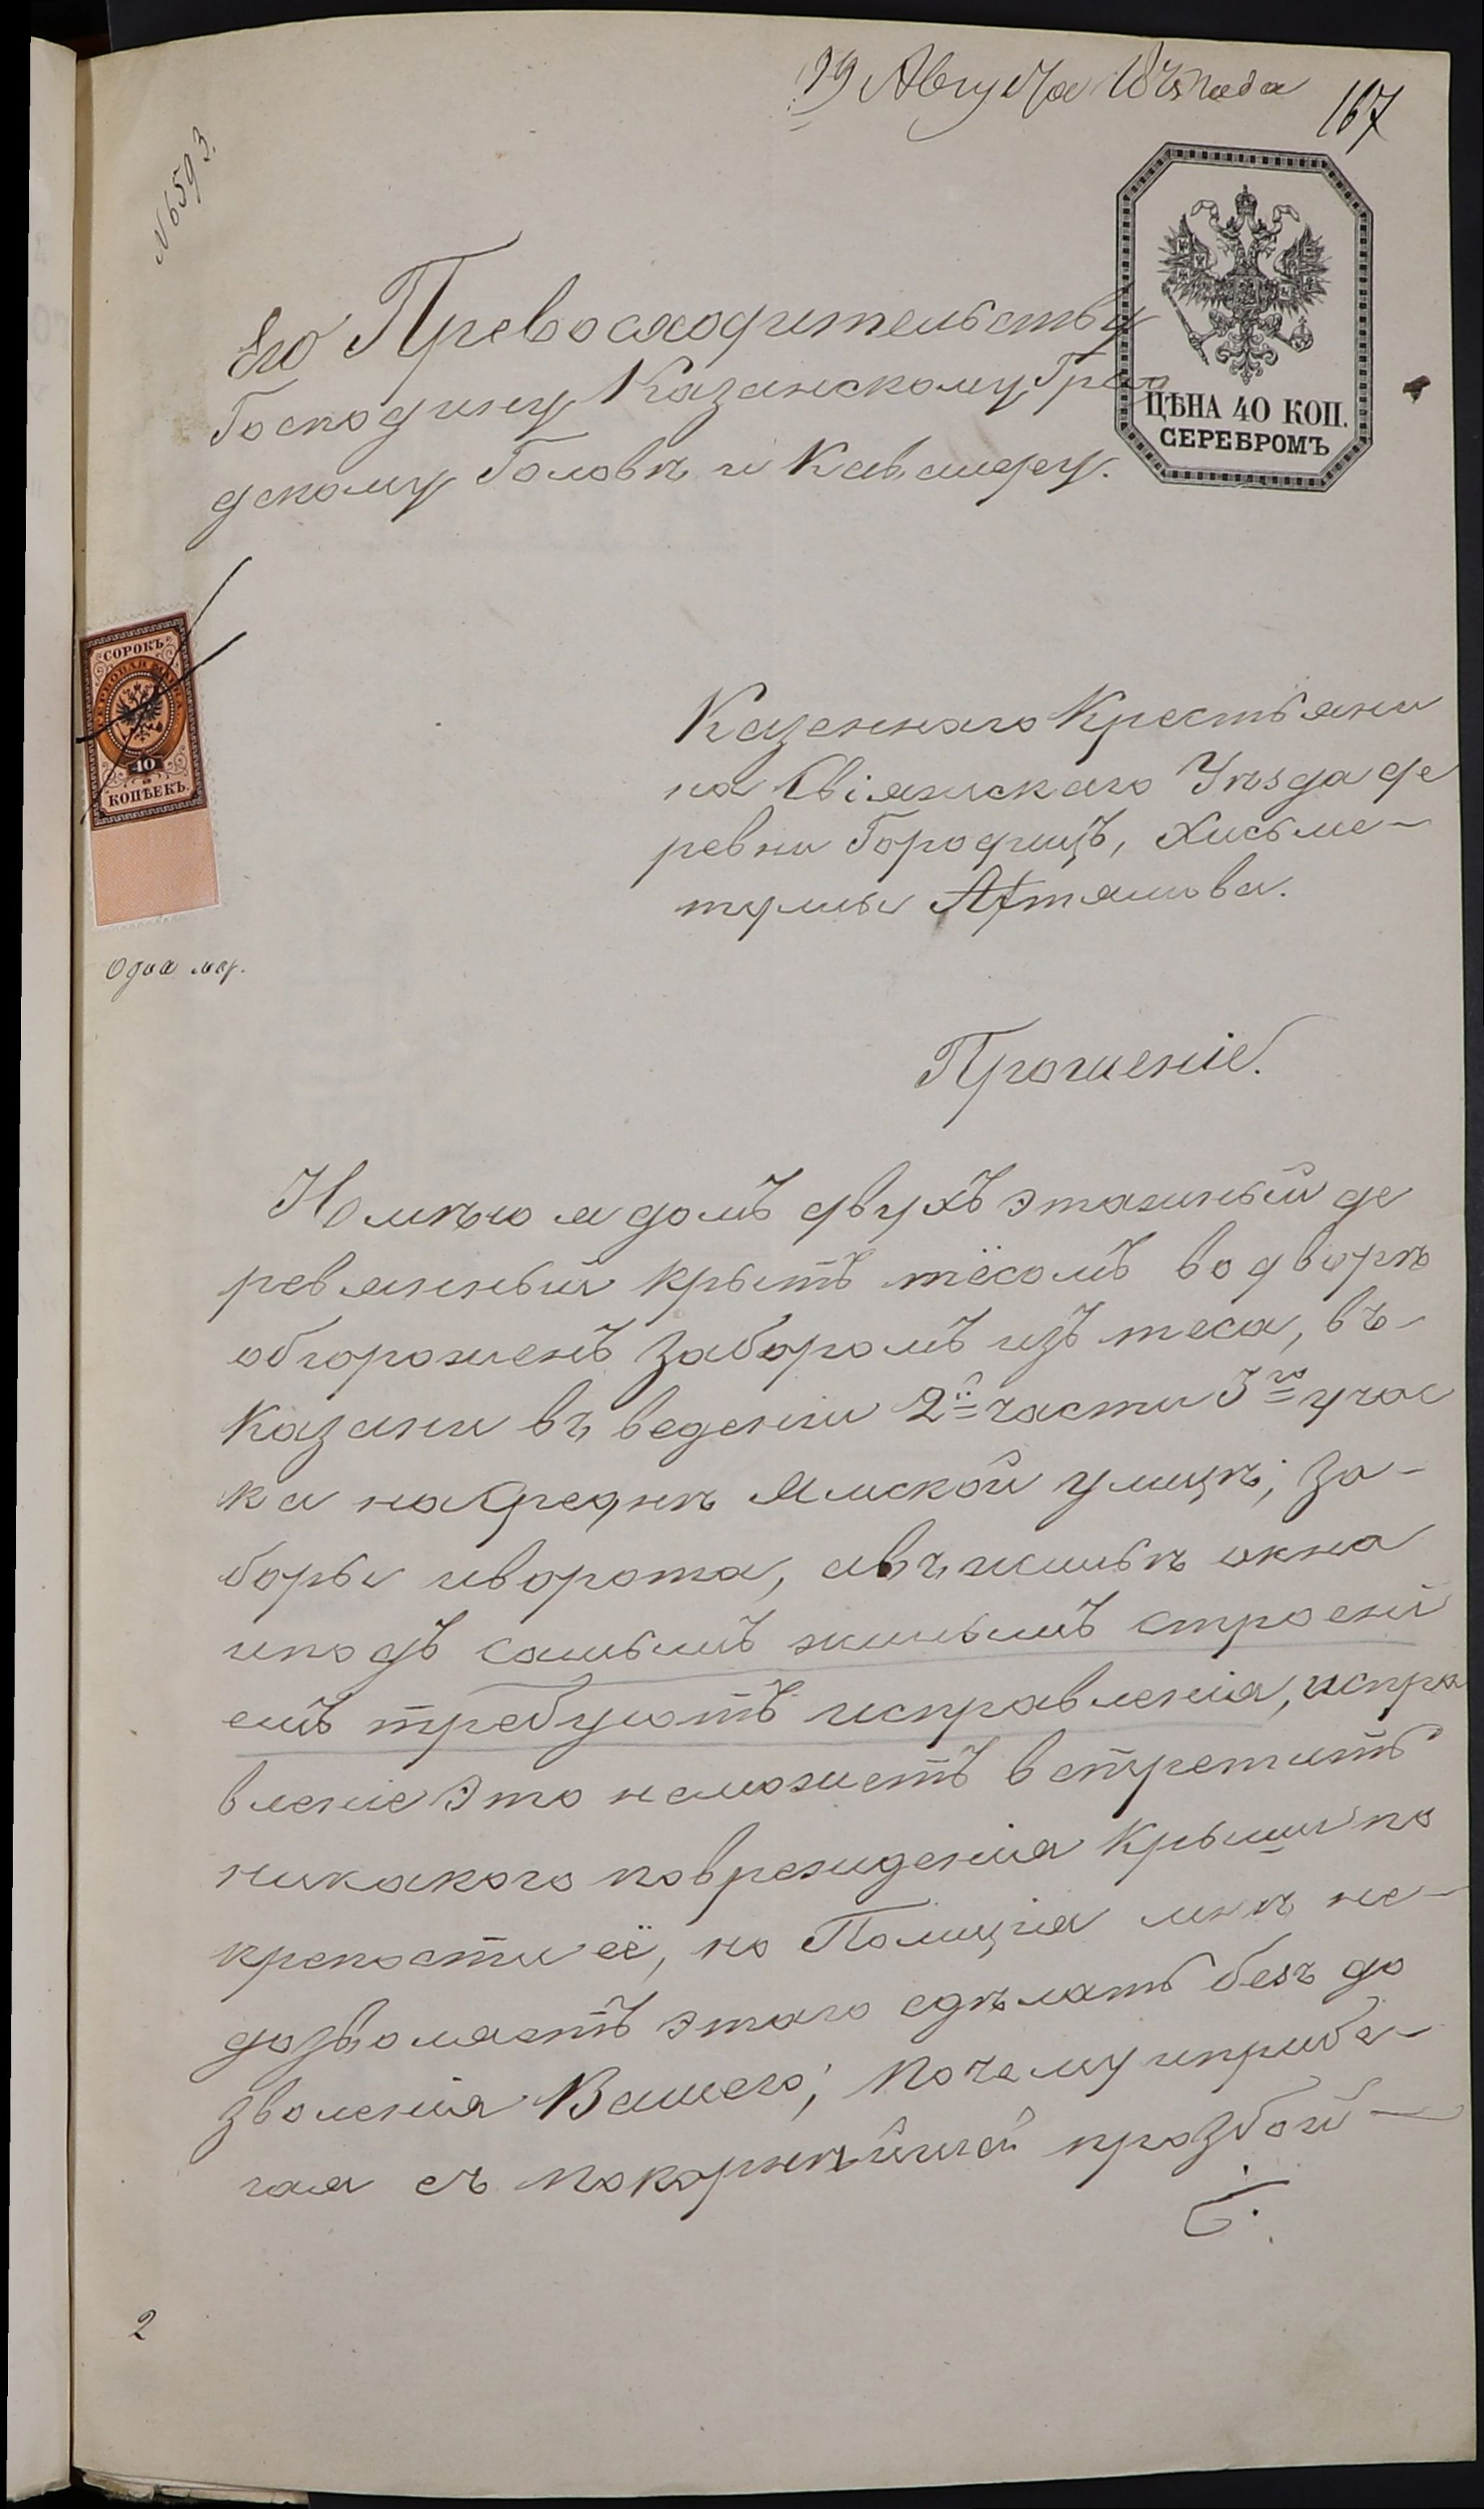 19 Августа 1875 года
167
№ 6593.
Его Превосходительству
Господину Казанскому Гра
дскому Головѣ и Кавалеру.
ЦѢНА 40 КОП.
СЕРЕБРОМЪ
СОРОКЪ
40
КОПѢЕКЪ.
Одна мар.
Казеннаго Крестьяни
на Свіяжскаго Уѣзда де
ревни Городищъ, Хисьме-
туллы Артямова.
Прошеніе.
Имѣю я домъ двухъ этажный де
ревянный крытъ тёсомъ во дворѣ
обгороженъ заборомъ изъ теса, въ-
Казани въ веденіи 2й части 3го учас
ка на Средне Ямской улицѣ; за-
боры иворота, авъ жильѣ окна
иподъ самымъ жилымъ строені
емъ требуютъ исправленія, испра
вленіе это неможетъ встретить
никакого поврежиденія Крыши по
крепости её, но Полиція мнѣ не-
дозволяетъ этаго сдѣлать безъ до
зволенія Вашего; почему иприбе-
гая съ покорнѣйшей прозбой
2